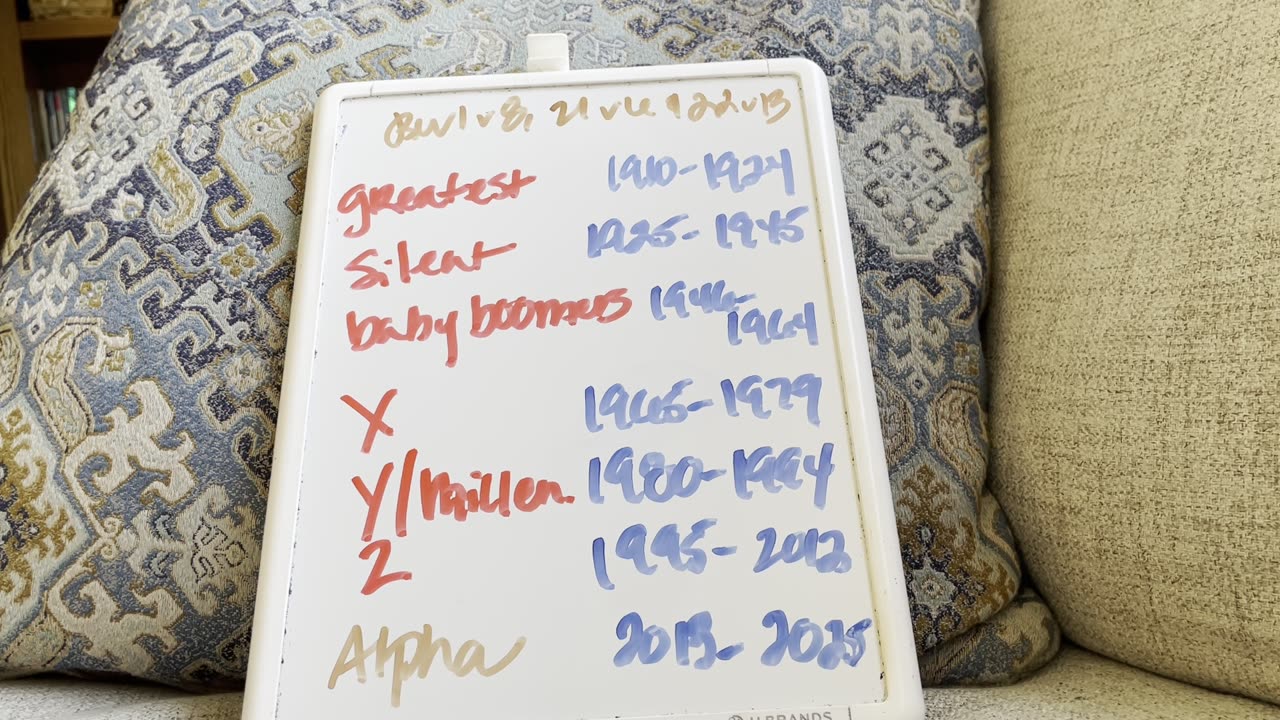 greatest 1910-1924
Silent 1925-1945
baby boomers 1946-
1964
X 1965-1979
Y/Millen. 1980-1994
Z 1995-2012
Alpha 2013-2025
U BRANDS